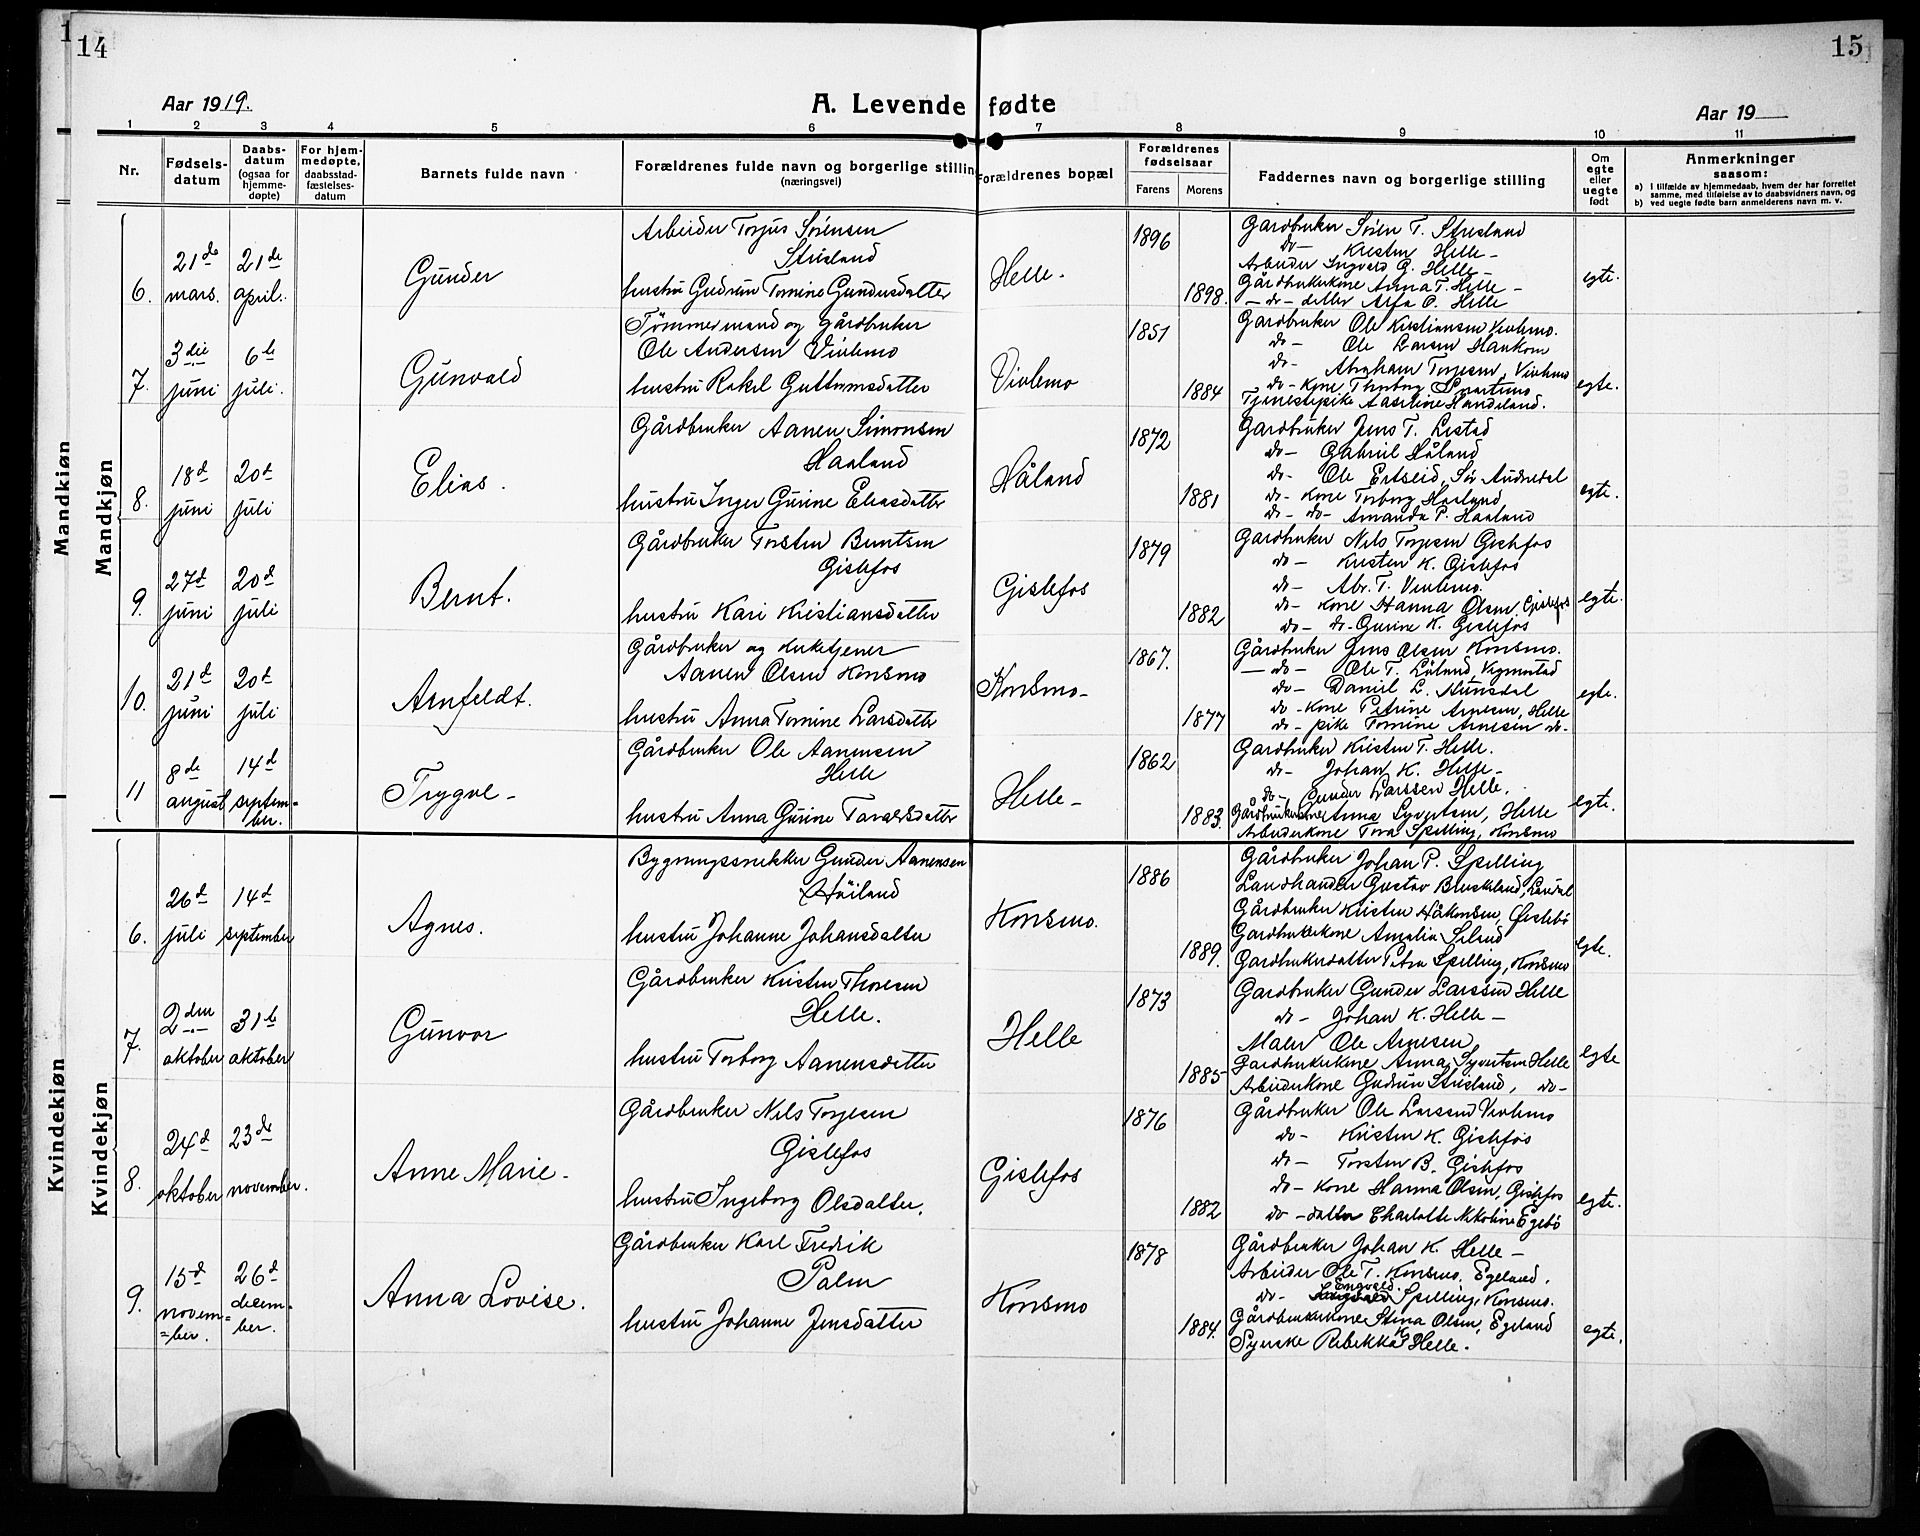 14
15
Aar 1919.
A. Levende fødte
Aar 19
1 2 3 4 5 6 7 8 9 10 11
Nr.
Fødsels-
datum
Daabs-
datum
(ogsaa for
hjemme-
døpte)
For hjem-
medøpte,
daabsstad-
fæstelses-
datum
Barnets fulde navn
Forældrenes fulde navn og borgerlige stilling
(næringsvei)
Forældrenes bopæl
Forældrenes
fødselsaar
Farens
Morens
Faddernes navn og borgerlige stilling
Om
egte
eller
uegte
født
Anmerkninger
saasom:
a) i tilfælde av hjemmedaab, hvem der har forrettet
samme, med tilføielse av to daabsvidners navn, og
b) ved uegte fødte barn anmelderens navn m. v.
Mandkjøn
Mandkjøn
6.
21de
mars.
21de
april.
Gunder
Arbeider Torjus Sørensen
Strisland
hustru Gudrun Tomine Gundersdatter
Helle.
1896
1898.
Gardbruker Søren T. Strisland
do- Kristen Helle-
Arbeider Ingvald G. Helle-
Gårdbrukerkone Anna T. Helle-
-do- datter Alfa O. Helle
egte.
7.
3die
juni
6te
juli.
Gunvald
Tømmermand og gårdbruker
Ole Andersen Vivlemo
hustru Rakel Guttormsdatter
Vivlemo
1851
1884
Gardbruker Ole Kristiansen Vivlemo.
do- Ole Larsen Haukom
do- Abraham Torjesen, Vivlemo
do- kone Thorborg
Tjenestepike Aaseline Handeland.
egte.
8.
18d
juni
20d
juli
Elias.
Gårdbruker Aanen Simonsen
Haaland
hustru Inger Gurine Eliasdatter
Håland
1872
1881
Gardbruker Jens T. Lestad
do- Gabriel Håland
do- Ole Ertseid, Sør Audnedal
do- kone Torborg Haaland
do- do- Amanda P. Haaland
egte.
9.
27d
juni
20d
juli
Bernt.
Gårdbruker Torsten Berntsen
Gislefos
hustru Kari Kristiansdatter
Gislefos
1879
1882
Gardbruker Nils Torjesen Gislefos
do- Kristen K. Gislefos
do- Abr. T. Vivlemo.
do- kone Hanna Olsen, Gislefos
do- do- Gurine K. Gislefos
egte.
10.
21d
juni
20d
juli
Arnfeldt.
Gårdbruker og kirketjener
Aanen Olsen Konsmo
hustru Anna Tomine Larsdatter
Konsmo-
1867.
1877
Gårdbruker Jens Olsen Konsmo.
-do- Ole T. Løland, Vegmestad
do- Daniel L. Hunsdal
do- kone Petrine Arnesen, Helle
do- pike Tomine Arnesen do-
egte.
11
8de
august
14d
septem=
ber.
Trygve-
Gårdbruker Ole Aanensen
Helle
hustru Anna Gurine Taraldsdatter
Helle-
1862
1883.
Gardbruker Kristen T. Helle.
do- Johan K. Helle-
do- Gunder Larssen Helle.
Gårdbrukerkone Anna Syvertsen, Helle
Arbeiderkone Tora Spilling, Konsmo
egte.
Kvindekjøn
Kvindekjøn
6.
26d
juli
14d
september
Agnes.
Bygningssnekker Gunder Aanensen
Høiland
hustru Johanne Johansdatter
Konsmo.
1886
1889.
Gårdbruker Johan P. Spilling
Landhandler Gustav Bruskeland, Laudal
Gårdbruker Kristen Håkonsen, Øislebø
Gardbrukerkone Amalia Seland
Gardbrukerdatter Petra Spilling, Konsmo
egte.
7.
2den
oktober
31te
oktober
Gunvor
Gårdbruker Kristen Thoresen
Helle.
hustru Torborg Aanensdatter
Helle
1873
1885
Gardbruker Gunder Larssen Helle
do- Johan K. Helle-
Maler Ole Arnesen
Gardbrukerkone Anna Syvertsen Helle
Arbeiderkone Gudrun Strisland, do-
egte
8.
24d
oktober
23de
november.
Anne Marie-
Gårdbruker Nils Torjesen
Gislefos
hustru Ingeborg Olsdatter.
Gislefos
1876
1882
Gårdbruker Ole Larssen Vivlemo
do- Kristen K. Gislefos
do- Torsten B. Gislefos
do- kone Hanna Olsen, Gislefos
do- datter Charlotte Nikoline Egebø
egte.
9.
15d
novem=
=ber.
26d
decem=
ber.
Anna Lovise.
Gårdbruker Karl Fredrik
Palm
hustru Johanne Jensdatter
Konsmo
1878
1884.
Gårdbruker Johan K. Helle-
Arbeider Ole T. Konsmo, Egeland.
do- Engvald Spilling, Konsmo.
Gårdbrukerkone Stina Olsen, Egeland
Syerske Rebekka K Helle.
egte.